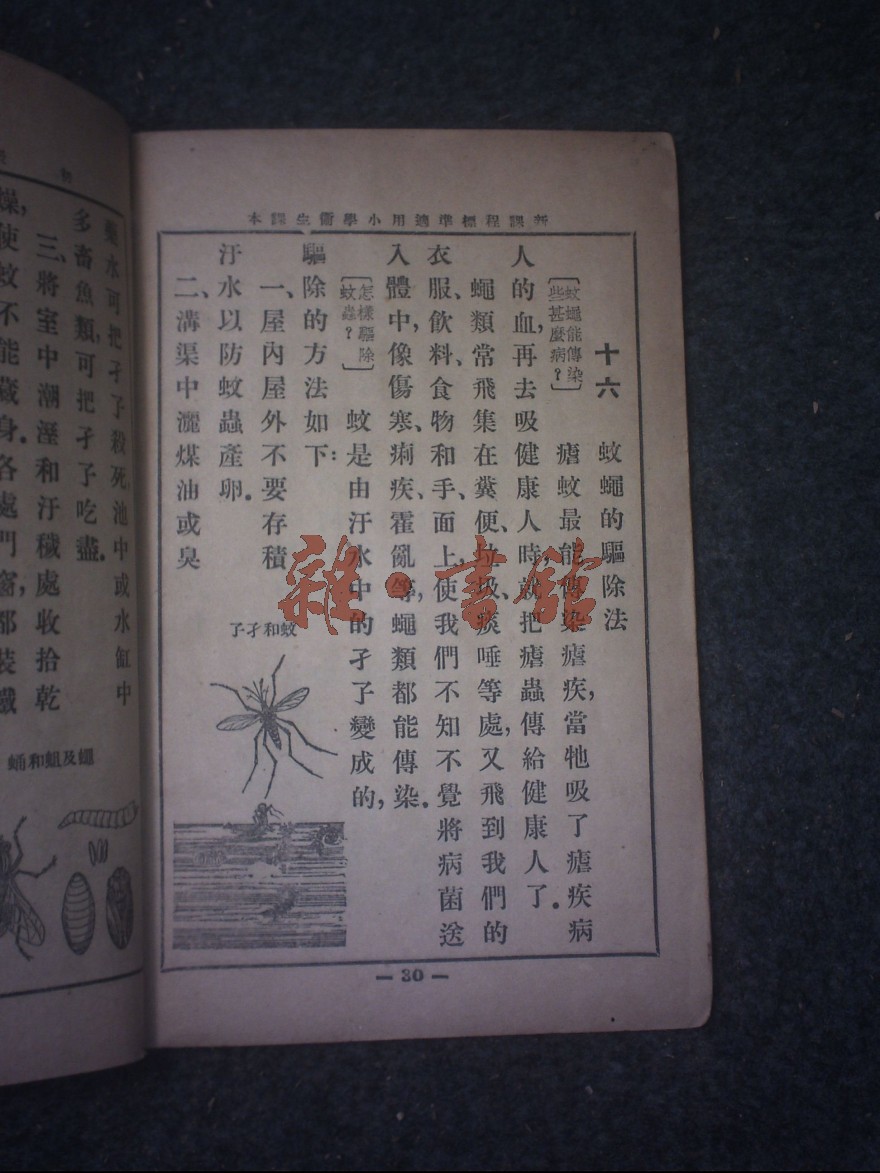 新課程標準適用小學衞生課本
十六 蚊蠅的驅除法
〔蚊蠅能傳染
些甚麼病？〕
瘧蚊最能傳染瘧疾，當牠吸了瘧疾病
人的血，再去吸健康人時，就把瘧蟲傳給健康人了。
蠅類常飛集在糞便、垃圾、痰唾等處，又飛到我們的
衣服、飲料、食物和手、面上，使我們不知不覺將病菌送
入體中，像傷寒、痢疾、霍亂等，蠅類都能傳染。
〔怎樣驅除
蚊蟲？〕
蚊是由汙水中的孑子變成的，
驅除的方法如下：
一、屋內屋外不要存積
汙水以防蚊蟲產卵。
二、溝渠中灑煤油或臭
蚊和孑子
— 30 —
藥水可把孑子殺死，池中或水缸中
多畜魚類，可把孑子吃盡。
三、將室中潮溼和汙穢處收拾乾
燥，使蚊不能藏身。各處門窗，都裝鐵
蠅及蛆和蛹
雜·書館